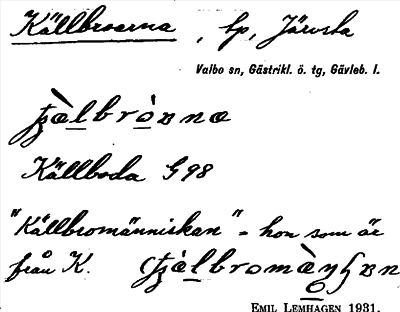 Källbroarna, bp, Järvsta
Valbo sn, Gästrikl. ö. tg, Gävleb. l.
Källboda G98
"Källbromänniskan" = hon som är
från K.
EMIL LEMHAGEN 1931.